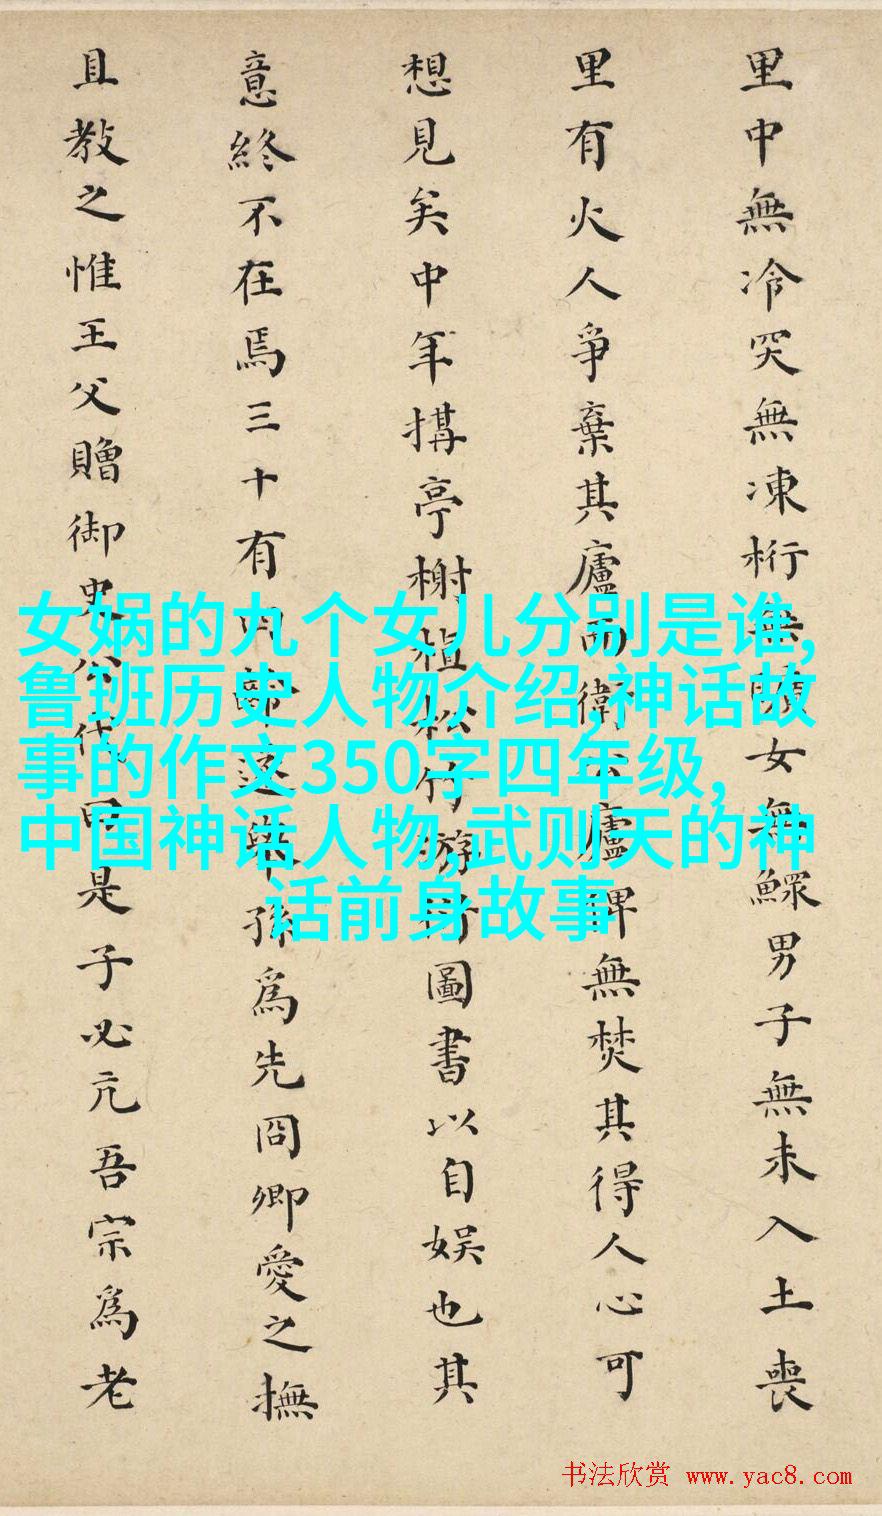 里中無冷突無凍桁無女無鰥男子無未入土喪
里有火人爭棄其廬而衛公廬俾無焚其得人心可
想見矣中年搆亭榭植松竹游圖書以自娛也其
意終不在焉三十有孫為先冏卿愛之撫
且教之惟王父贈御史公曰是子必亢吾宗為老
女娲的九个女儿分别是谁,
鲁班历史人物介绍,神话故
事的作文350字四年级,
中国神话人物,武则天的神
话前身故事
书法欣赏 www.yac8.com